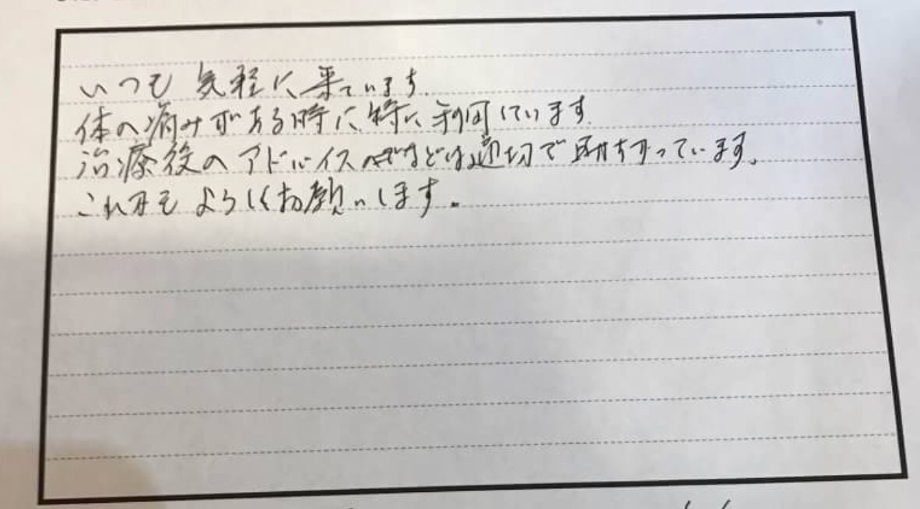 いつも気軽に来ています。
体の痛みがある時に特に利用しています。
治療後のアドバイスなどは適切で助かっています。
これからもよろしくお願いします。